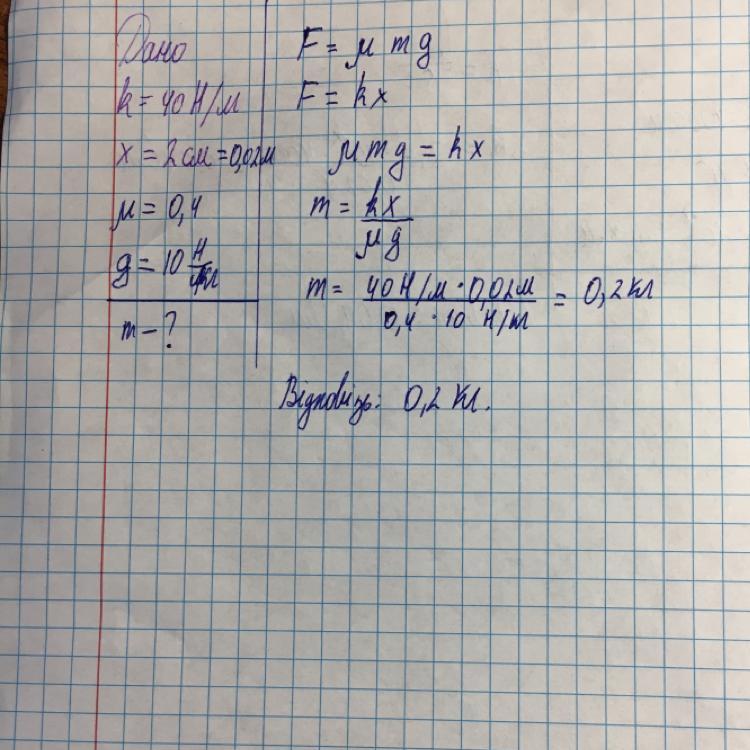 Дано
k = 40 Н/м
x = 2 см = 0,02м
μ = 0,4
g = 10 Н/кг
m – ?
F = μ m g
F = k x
μ m g = k x
m = kx / μg
m = 40 Н/м · 0,02м / 0,4 · 10 Н/кг = 0,2 кг
Відповідь: 0,2 кг.